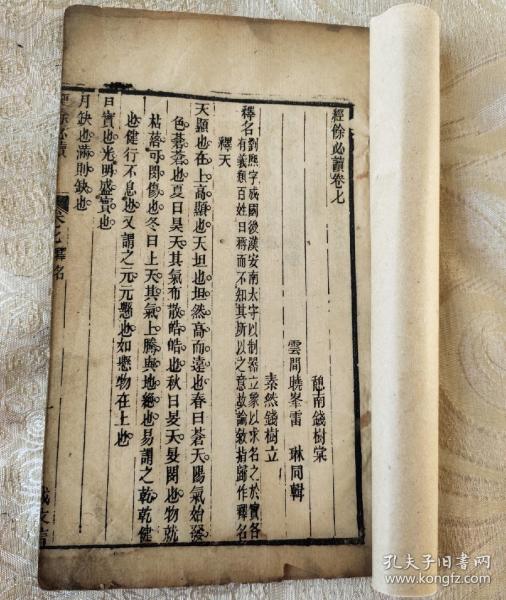 經餘必讀卷七
錢樹棠
雲間曉峯雷 琳同輯
錢樹立
釋名劉熙字成國後漢安南太守以制器立象以來名之於實各
有義類百姓日稱而不知其所以之意故論敘指歸作釋名
釋天
天顯也在上高顯也天坦也坦然高而遠也春曰蒼天陽氣始發
色蒼蒼也夏曰昊天其氣布散皓皓也秋曰旻天旻閔也物就
枯落可閔傷也冬曰上天其氣上騰與地絕也易謂之乾乾健
也健行不息也又謂之元元懸也如懸物在上也
日實也光明盛實也
月缺也滿則缺也
釋名
孔夫子旧书网
www.kongfz.com